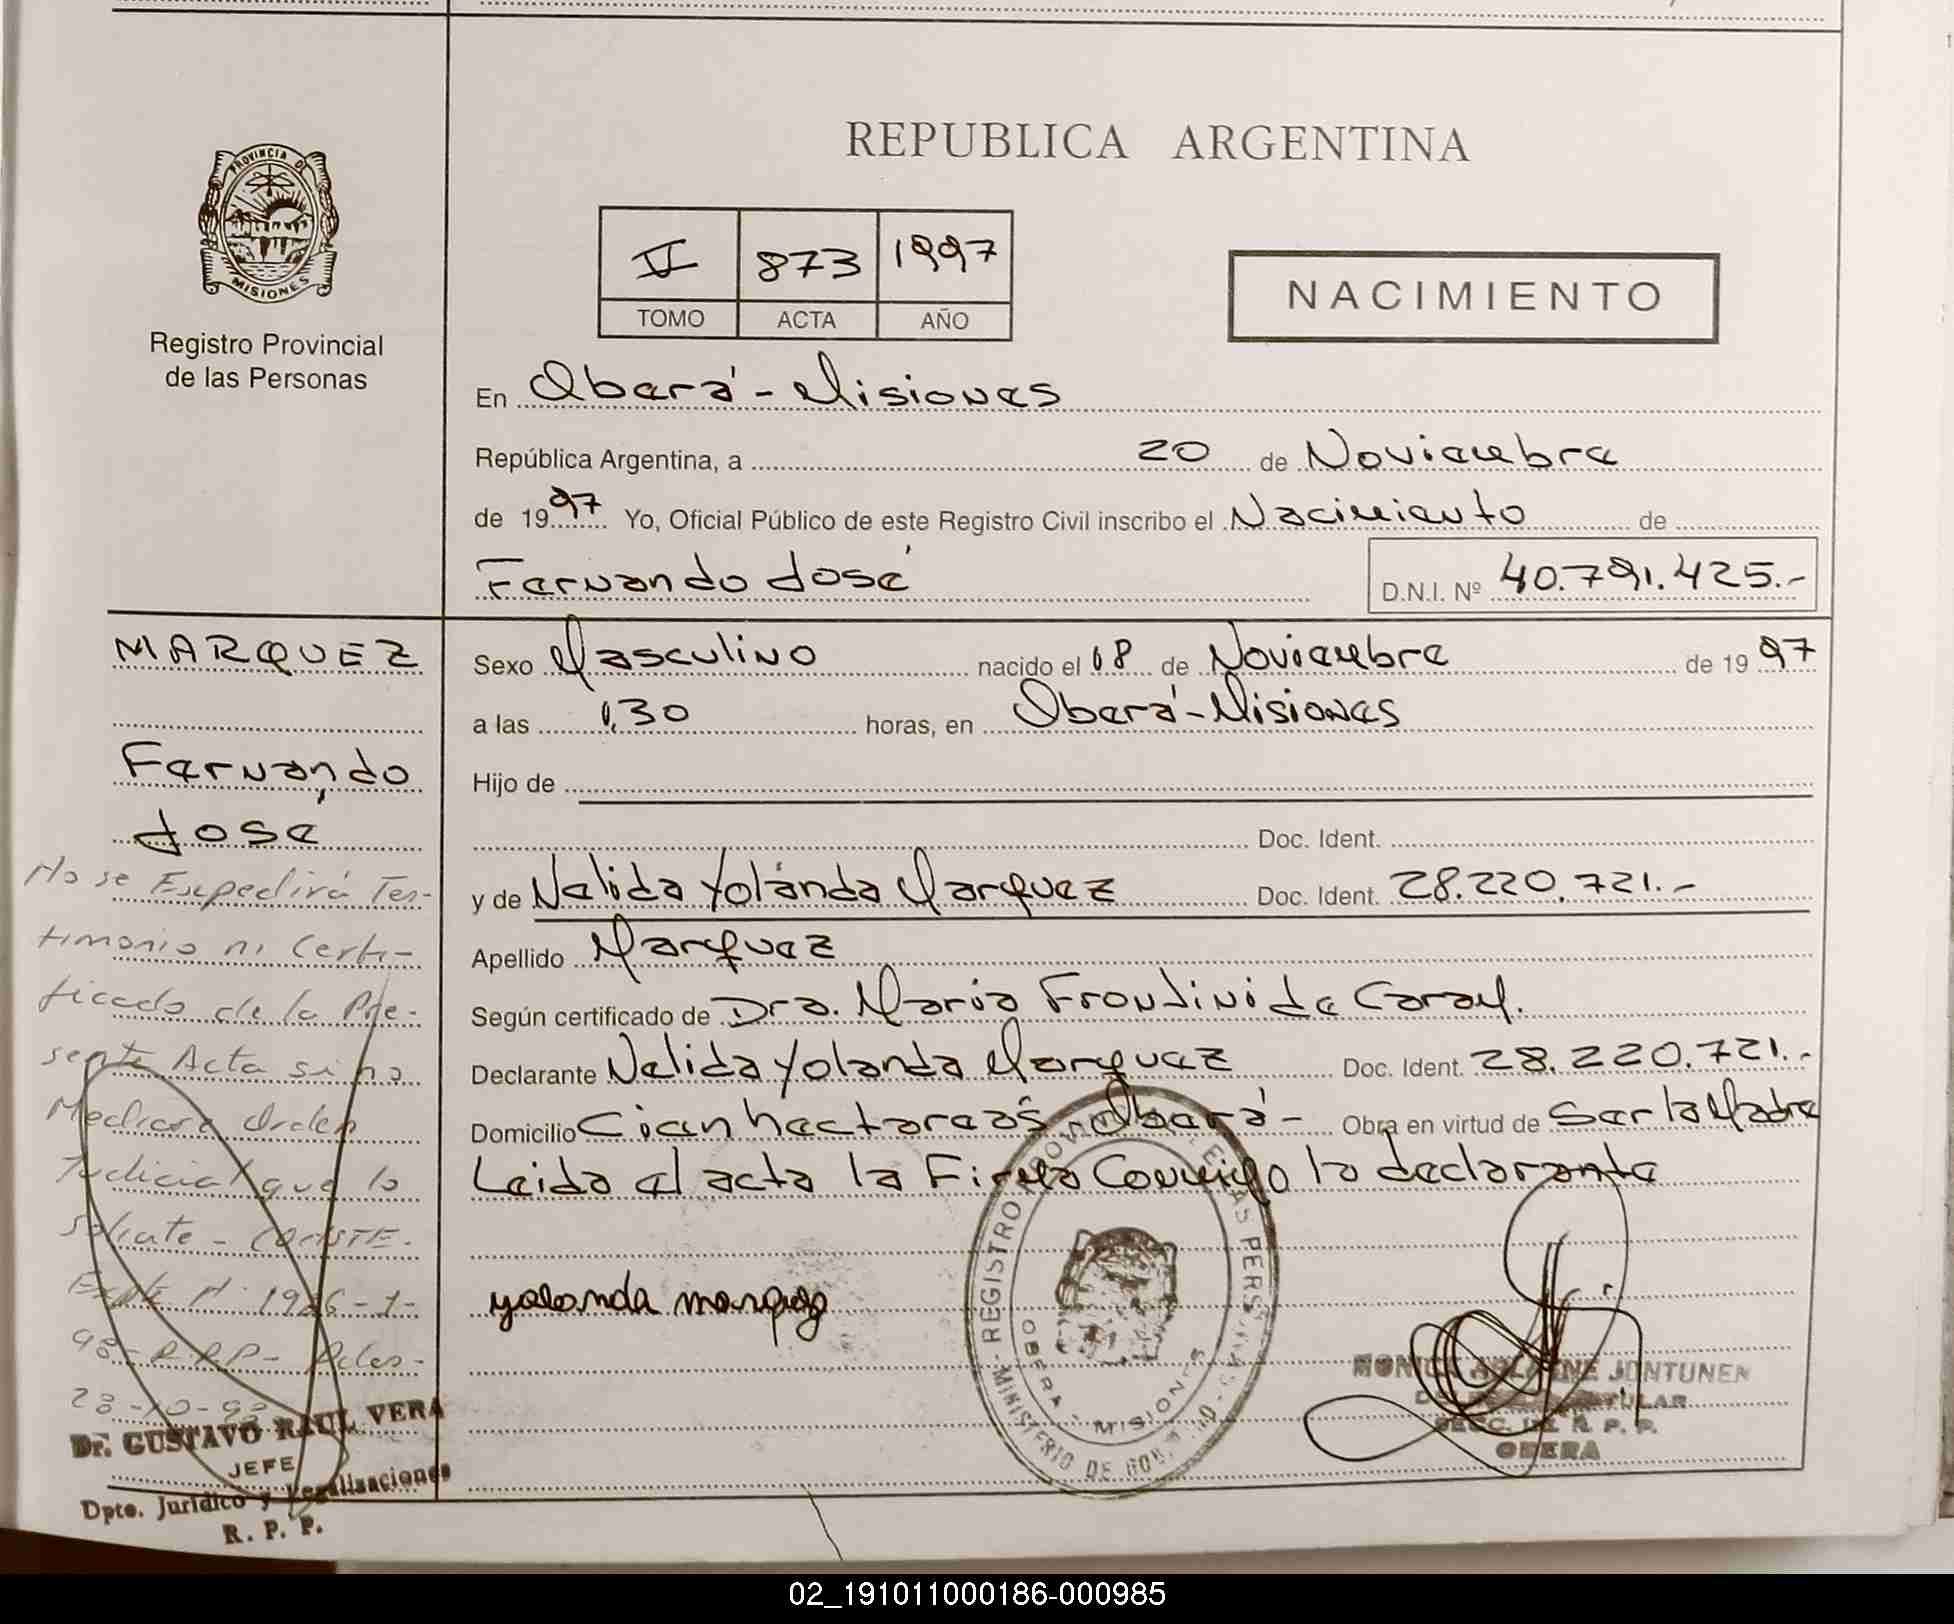 REPUBLICA ARGENTINA
PROVINCIA DE
MISIONES
Registro Provincial
de las Personas
V 873 1997
TOMO ACTA AÑO
NACIMIENTO
En Oberá - Misiones
República Argentina, a 20 de Noviembre
de 1997 Yo, Oficial Público de este Registro Civil inscribo el Nacimiento de
Fernando José D.N.I. Nº 40.791.425.-
MARQUEZ
Fernando
José
No se Expedirá Tes-
timonio ni Certi-
ficado de la Pre-
sente Acta si no
Mediare Orden
Judicial que lo
solicite - CONSTE.
Expte Nº 1986-1-
98 - R.P.P - Pdas -
28-10-98
Dr. GUSTAVO RAUL VERA
JEFE
Dpto. Jurídico y Legalizaciones
R. P. P.
Sexo Masculino nacido el 18 de Noviembre de 1997
a las 1,30 horas, en Oberá - Misiones
Hijo de
Doc. Ident.
y de Nelida Yolanda Marquez Doc. Ident. 28.220.721.-
Apellido Marquez
Según certificado de Dra. Maria Frontini de Coral.
Declarante Nelida Yolanda Marquez Doc. Ident. 28.220.721.-
Domicilio Cien hectareas - Oberá - Obra en virtud de Ser la Madre
Leida el acta la Firma Conmigo la declarante
yolanda marquez
REGISTRO PROVINCIAL DE LAS PERSONAS
MINISTERIO DE GOBIERNO
OBERA - MISIONES
MONICA JONTUNEN
TITULAR
R. P. P.
OBERA
02_191011000186-000985